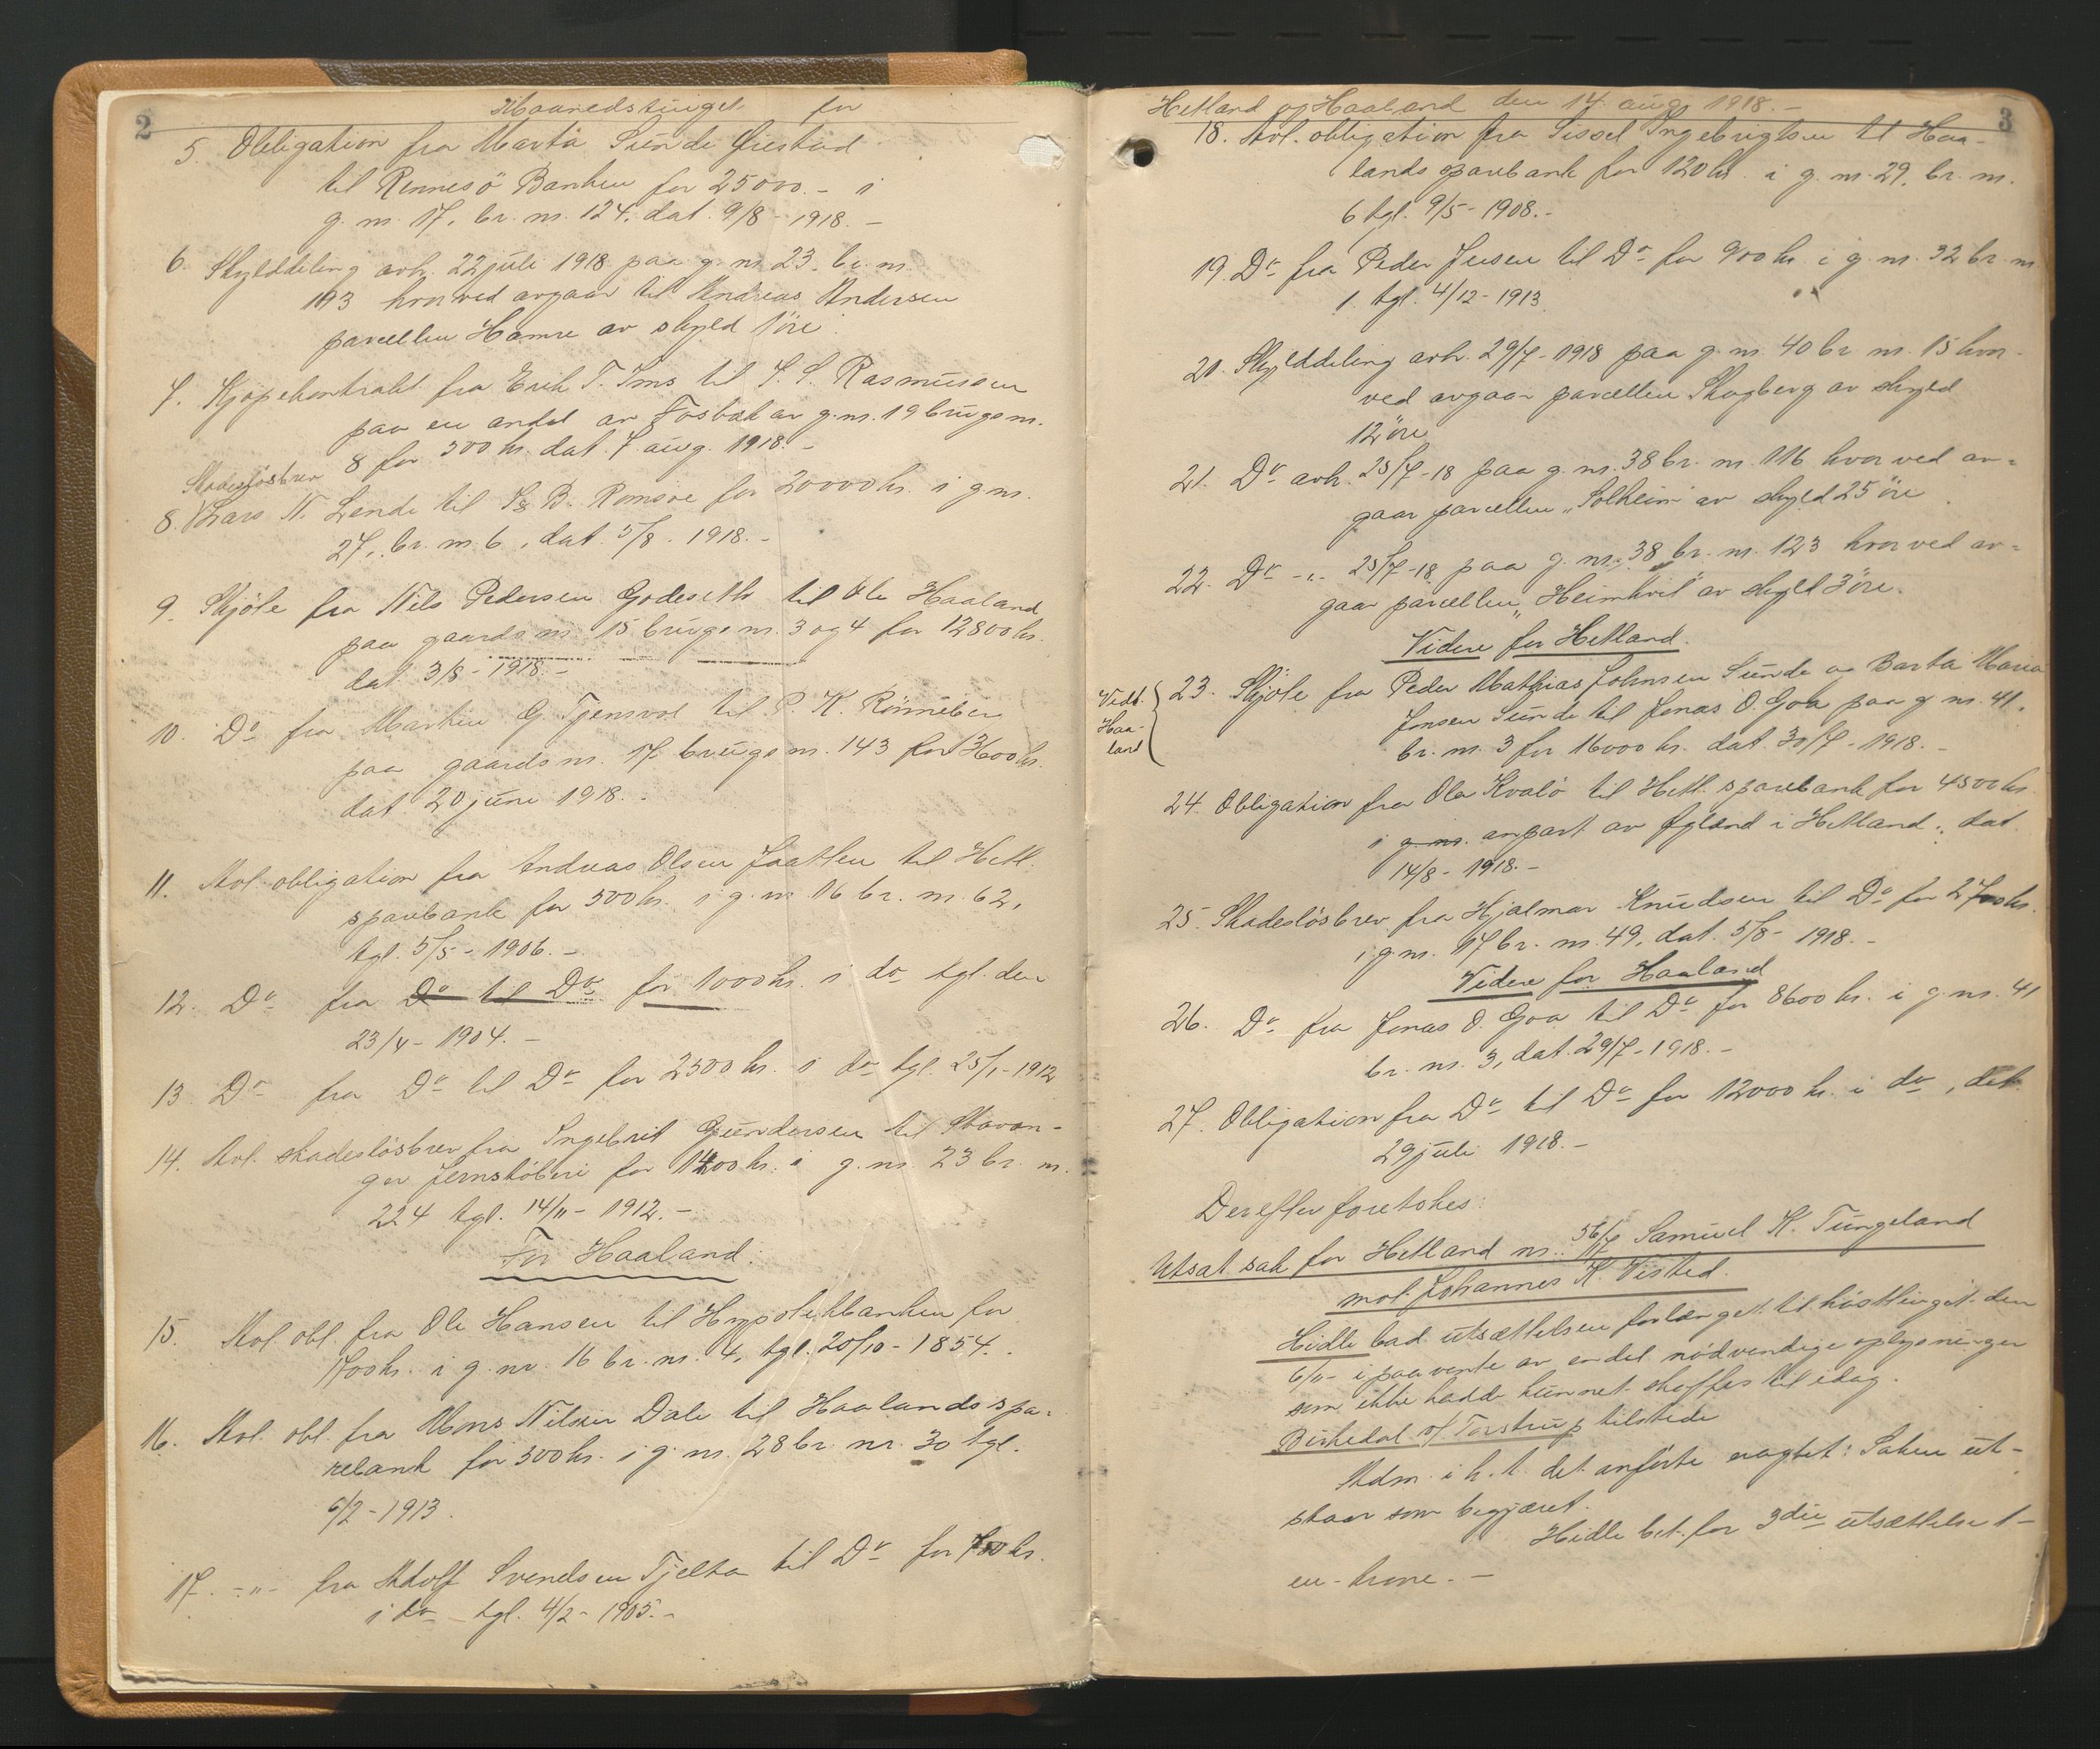 2
Maanedstinget for
5. Obligation fra Marta Sunde Øiestad
til Rennesö Banken for 25000.- i
g. nr. 17, br. nr. 124, dat. 9/8 - 1918. -
6. Skylddeling avh. 22 juli 1918 paa g. nr. 23. br. nr.
193 hvorved avgaar til Andreas Andersen
parcellen Hamre av skyld 1 öre.
7. Kjøpekontrakt fra Erik T. Ims til S. S. Rasmussen
paa en andel av Fosbæk av g. nr. 19 brugs nr.
8 for 500 kr. dat. 7 aug. 1918. -
Skadesløsbrev
8. Lars N. Lende til S & B. Romsøe for 20000 kr. i g nr.
27, br. nr. 6, dat. 5/8. 1918. -
9. Skjöte fra Nils Pedersen Godeseth til Ole Haaland
paa gaards nr. 15 brugs nr. 3 og 4 for 12800 kr.
dat 3/8 - 1918. -
10. Do fra Martin G. Tjensvol til P. K. Rönneberg
paa gaards nr. 17 brugs nr. 143 for 3600 kr.
dat. 20 juni 1918. -
11. Avl. obligation fra Andreas Olsen Jaatten til Hetl.
sparebank for 500 kr. i g. nr. 16 br. nr. 62,
tgl. 5/5 - 1906. -
12. Do fra Do til Do for 1000 kr. i do tgl. den
23/4 - 1904. -
13. Do fra Do til Do for 2500 kr. i do tgl. 25/1 - 1912
14. Avl. skadeslösbrev fra Ingebret Gundersen til Stavan-
ger Jernstöberi for 1400 kr. i g. nr. 23 br. nr.
224 tgl. 14/11 - 1912. -
For Haaland.
15. Avl. obl. fra Ole Hansen til Hypotekbanken for
1700 kr. i g. nr. 16 br. nr. 4, tgl. 20/10 - 1854. -
16. Avl. obl. fra Mons Nilsen Dale til Haalands spa-
rebank for 500 kr. i g. nr. 28 br. nr. 30 tgl.
6/2 - 1913.
17. -"- fra Adolf Svendsen Tjelta til Do for 700 kr.
i do tgl. 4/2 - 1905. -
Hetland og Haaland den 14 aug. 1918. -
3
18. Avl. obligation fra Sissel Ingebrigtsen til Haa-
lands sparebank for 120 kr. i g. nr. 29, br. nr.
6 tgl. 9/5 - 1908. -
19. Do fra Peder Jensen til Do for 900 kr. i g. nr. 32 br. nr
1. tgl. 4/12 - 1913
20. Skylddeling avh. 29/7 - 1918 paa g. nr. 40 br nr. 15 hvor-
ved avgaar parcellen Skogberg av skyld
12 öre
21. Do avh. 25/7 - 18 paa g. nr. 38 br. nr. 116 hvorved av-
gaar parcellen „Solheim" av skyld 25 öre.
22. Do -"- 25/7 - 18 paa g. nr. 38 br. nr. 123 hvorved av-
gaar parcellen „Heimhvil" av skyld 3 öre.
Videre for Hetland.
Vedk. Haa-
land
23. Skjöte fra Peder Mathias Johnsen Sunde og Barta Maria
Jonsen Sunde til Jonas O. Goa paa g nr. 41,
br. nr. 3 for 16000 kr. dat. 30/7 - 1918. -
24. Obligation fra Ola Kvalö til Hetl. sparebank for 4500 kr.
i g. nr. anpart av Øgland i Hetland, dat.
14/8 - 1918. -
25. Skadeslösbrev fra Hjalmar Knudsen til Do for 2700 kr.
i g. nr. 17 br. nr. 49, dat. 5/8 - 1918. -
Videre for Haaland
26. Do fra Jonas O. Goa til Do for 8600 kr. i g. nr. 41
br. nr. 3, dat. 29/7 - 1918. -
27. Obligation fra Do til Do for 12000 kr. i do, dat.
29 juli 1918. -
Derefter foretokes:
Utsat sak for Hetland nr. 56/17 Samuel K. Tungeland
mot Johannes K. Visted.
Hidle bad utsættelsen forlænget til høsttinget den
6/11 - i paavente av endel nødvendige oplysninger
som ikke hadde kunnet skaffes til idag.
Birkedal v/ Torstrup tilstede
Adm. i h. t. det anførte vagtet: Saken ut-
staar som begjæret.
Hidle bet. for 3die utsættelse 1 -
en - krone. -